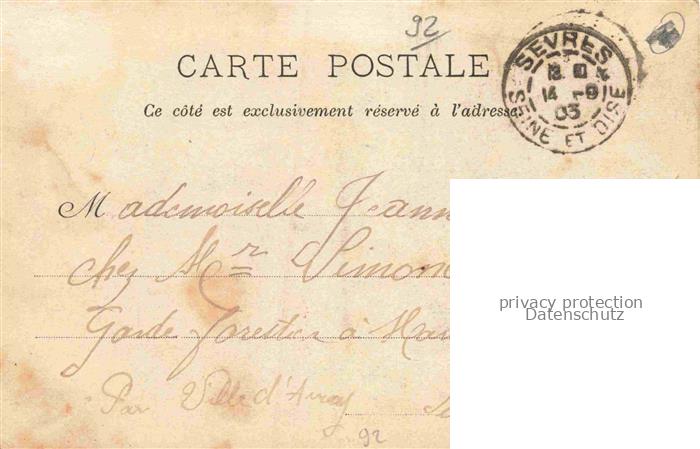 92
CARTE POSTALE
Ce côté est exclusivement réservé à l'adresse
SEVRES
14 -9
03
SEINE ET OISE
Mademoiselle Jeann
chez Mr Simon
privacy protection
Datenschutz
Garde forestier à
Par Ville d'Avray
92